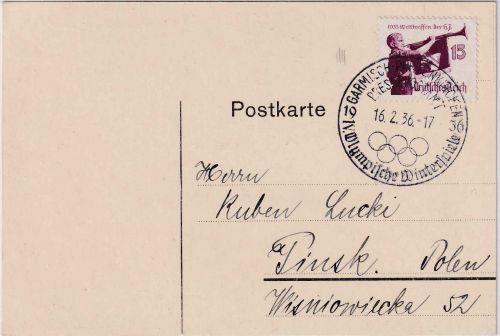 1935 Welttreffen der H.J.
15
Deutsches Reich
GARMISCH-PARTENKIRCHEN
16.2.36.-17
36
IV. Olympische Winterspiele
Postkarte
Herrn
Ruben Lucki
Pinsk. Polen
Wisniowiecka 52